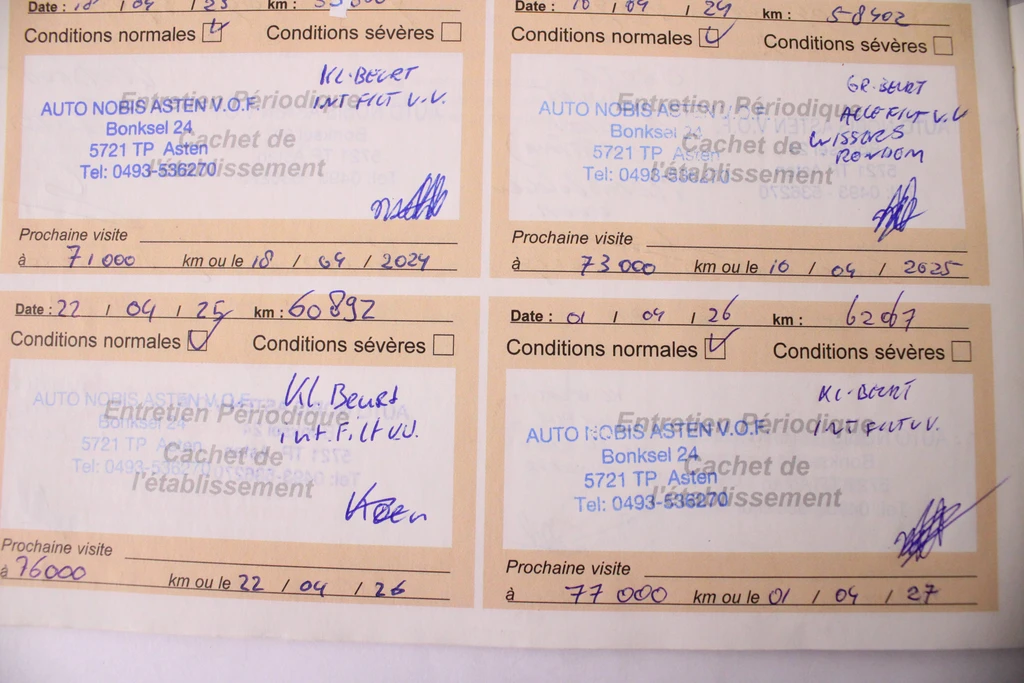 Date : 18 / 04 / 23 km :
Conditions normales Conditions sévères
KL·BEURT
INT FILT V.V.
Entretien Périodique
Cachet de
l'établissement
AUTO NOBIS ASTEN V.O.F.
Bonksel 24
5721 TP Asten
Tel: 0493-536270
Prochaine visite
à 71000 km ou le 18 / 04 / 2024
Date : 10 / 04 / 24 km : 58402
Conditions normales Conditions sévères
GR·BEURT
ALLE FILT V.V
WISSERS
RONDOM
Entretien Périodique
Cachet de
l'établissement
AUTO NOBIS ASTEN V.O.F.
Bonksel 24
5721 TP Asten
Tel: 0493-536270
Prochaine visite
à 73000 km ou le 10 / 04 / 2025
Date : 22 / 04 / 25 km : 60892
Conditions normales Conditions sévères
Kl. Beurt
int. Filt V.V.
Entretien Périodique
Cachet de
l'établissement
AUTO NOBIS ASTEN V.O.F.
Bonksel 24
5721 TP Asten
Tel: 0493-536270
Koen
Prochaine visite
à 76000 km ou le 22 / 04 / 26
Date : 01 / 04 / 26 km : 62067
Conditions normales Conditions sévères
KL·BEURT
INT FILT V.V.
Entretien Périodique
Cachet de
l'établissement
AUTO NOBIS ASTEN V.O.F.
Bonksel 24
5721 TP Asten
Tel: 0493-536270
Prochaine visite
à 77000 km ou le 01 / 04 / 27